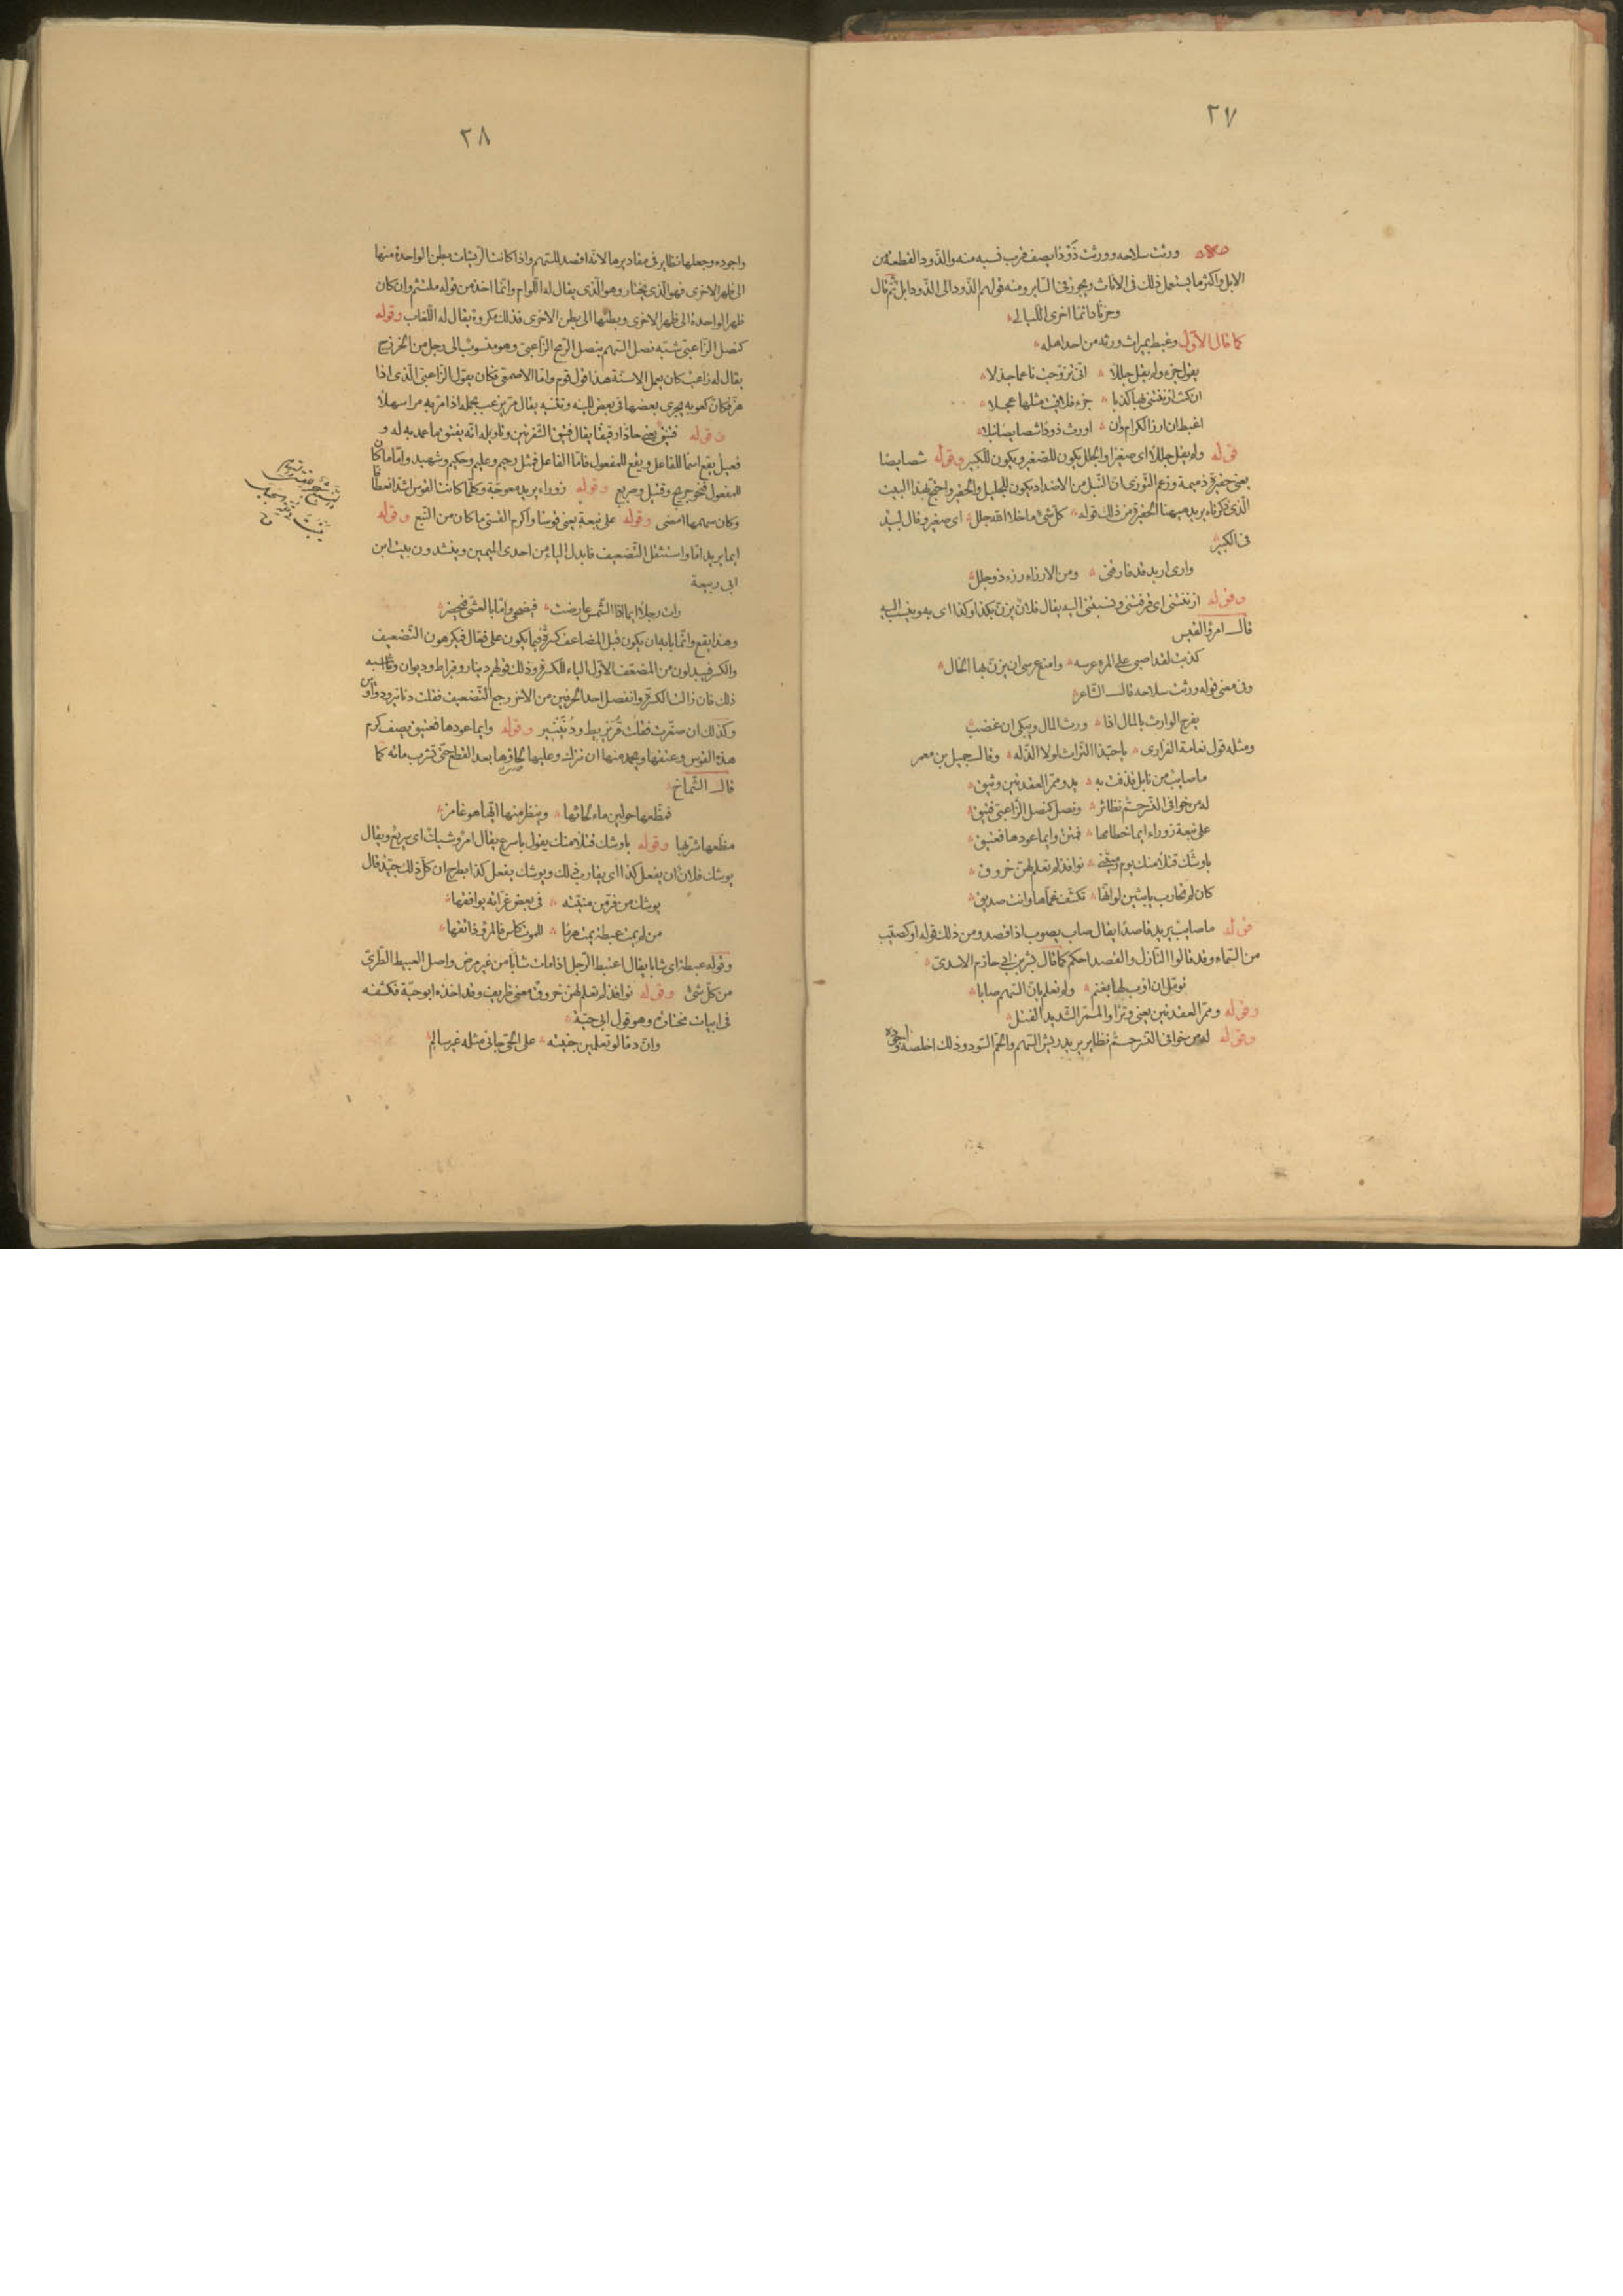 ٢٧
ورثت سلاحه وورثت ذَوْدًا يصف قرب نسبه منه والذّود القطعة من
الابل واكثر ما يستعمل ذلك فى الاناث ويجوز فى السّاير ومنه قولهم الذّود الى الذّود ابل ثمّ قال
وحزنًا دائمًا اخرى اللّيالى
كما قال الاوّل وغبط بميراث ورثه من احد اهله
يقول جزء ولم يقل جللًا انّى تزوّجت ناعمًا جذلا
ان كنت ازننتنى بها كذبا جزء فلاقيت مثلها عجلا
اغبط ان ارزا الكرام وان اورث ذودًا شصايصًا نبلا
قوله ولم يقل جللًا اى صغيرًا والجلل يكون للصّغير ويكون للكبير وقوله شصايصا
يعنى حقيرة ذميمة وزعم التّوزى انّ النّبل من الاضداد يكون للجليل والحقير واحتجّ بهذا البيت
الّذى ذكرناه يريد ههنا الحقيرة من ذلك قوله كلّ شئ ما خلا الله جلل اى صغير وقال لبيد
فى الكبير
وارى اربد قد فارقنى ومن الارزاء رزء ذو جلل
وقوله ازننتنى اى قرفتنى ونسبتنى اليه يقال فلان يزنّ بكذا وكذا اى يه وينسب اليه
قال امرؤ القيس
كذبت لقد اصبى على المرء عرسه وامنع عرسى ان يزنّ بها الخال
وفى معنى قوله ورثت سلاحه قال الشّاعر
يفرح الوارث بالمال اذا ورث المال ويبكى ان غضب
ومثله قول نعامة الفزارى يا حبّذا التّراث لولا الذّله وقال جميل بن معمر
ما صايب من نابل قذفت به يد وممرّ العقدتين وثيق
له من خوافى النّسر حمّ نظائر ونصل كنصل الزّاعبىّ فتيق
على نبعة زوراء ايما خطامها فمتن وايما عودها فعتيق
باوشك قتلًا منك يوم رميتنى نوافذ لم تعلم لهنّ خروق
كان لم نحارب يا بثين لو انّها تكشّف غمّاها وانت صديق
قوله ما صايب يريد قاصدًا يقال صاب يصوب اذا قصد ومن ذلك قوله او كصيّب
من السّماء وقد قالوا النّازل والقصد احكم كما قال بشر بن ابى حازم الاسدىّ
تومّل ان اؤب لها بغنم ولم تعلم بانّ السّهم صابا
وقوله وممرّ العقدتين يعنى وترًا والممرّ الشّديد الفتل
وقوله له من خوافى النّسر حمّ نظاير يريد ريش السّهم والحمّ السّود وذلك اخلصه واجوده
٢٨
واجوده وجعلها نظاير فى مقاديرها لانّه اقصد للسّهم واذا كانت الرّيشات بطن الواحدة منها
الى ظهر الاخرى فهو الّذى يختار وهو الّذى يقال له اللّوام وانّما اخذ من قوله ملتئم وان كان
ظهر الواحدة الى ظهر الاخرى وبطنها الى بطن الاخرى فذلك مكروة يقال له اللّغاب وقوله
كنصل الزّاعبىّ شبّه نصل السّهم بنصل الرّمح الزّاعبىّ وهو منسوب الى رجل من الخزرج
يقال له زاعب كان يعمل الاسنّة هذا قول قوم وامّا الاصمعىّ فكان يقول الزّاعبىّ الّذى اذا
هزّ فكانّ كعوبه يجرى بعضها فى بعض للينه وتثنّيه يقال مرّ يزعب بحمله اذا مرّ به مرا سهلا
وقوله فتيق يعنى حادّا رقيقًا يقال فتيق الشّفرتين وتاويله انّه يفتق ما عمد به له و
فعيل يقع اسمًا للفاعل ويقع للمفعول فامّا الفاعل فمثل رحيم وعليم وحكيم وشهيد وامّا ما كان
للمفعول فنحو جريح وقتيل وصريع وقوله زوراء يريد معوجّة وكلّما كانت القوس اشدّ انعطافا
وكان سهمها امضى وقوله على نبعة يعنى قوسًا واكرم القسىّ ما كان من النّبع وقوله
ايما يريد امّا واستثقل التّضعيف فابدل الياء من احدى الميمين وينشدون بيت ابن
ابى ربيعة
رات رجلًا ايما اذا الشّمس عارضت فيضحى وامّا بالعشىّ فيخصر
وهذا يقع وانّما بابه ان يكون قبل المضاعف كسرة فيما يكون على فعّال فيكرهون التّضعيف
والكسر فيبدلون من المضعّف الاوّل الياء للكسرة وذلك قولهم دينار وقيراط وديوان وما اشبه
ذلك فان زالت الكسرة وانفصل احد الحرفين من الاخر رجع التّضعيف فقلت دنانير ودواوين
وكذلك ان صغّرت فقلت قُرَيْريط ودُنَيْنير وقوله وايما عودها فعتيق يصف كرم
هذه القوس وعتقها ويحمد منها ان تترك وعليها لحاؤها بعد القطع حتّى تشرب مائه كما
قال الشّماخ
فمظّعها حولين ماء لحائها وينظر منها ايّها هو غامز
مظّعها شرّبها وقوله باوشك قتلًا منك يقول باسرع يقال امر وشيك اى سريع ويقال
يوشك فلان ان يفعل كذا اى يقارب ذلك ويوشك يفعل كذا بطرح ان كلّ ذلك جيّد قال
يوشك من فرّ من منيّته فى بعض غرّاته يوافقها
من لم يمت عبطة يمت هرمًا للموت كاس فالمرؤ ذائقها
وقوله عبطة اى شابا يقال اعتبط الرّجل اذا مات شابًا من غير مرض واصل العبيط الطّرىّ
من كلّ شئ وقوله نوافذ لم تعلم لهنّ خروق معنى ظريف وقد اخذه ابو حيّة فكشفه
فى ابيات مختارة وهو قول ابى حيّة
وانّ دمًا لو تعلمين جنيته على الحىّ جانى مثله غير سالم